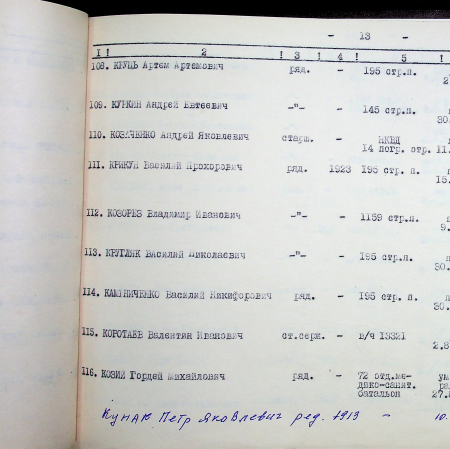 - 13 -
1 ! 2 ! 3 ! 4 ! 5 !
108. КРУЦЬ Артем Артемович ряд. - 195 стр.п.
109. КУРКИН Андрей Евтеевич -"- - 145 стр.п.
30.
110. КОЗАЧЕНКО Андрей Яковлевич старш. - НКВД
14 погр. стр. 11.
111. КРИКУН Василий Прохорович ряд. 1923 195 стр. п.
15.
112. КОЗОРЕЗ Владимир Иванович -"- - 1159 стр.п.
9.
113. КРУГЛЯК Василий Николаевич -"- - 195 стр.п.
30.
114. КАМЯНИЧЕНКО Василий Никифорович ряд. - 195 стр. п.
30.
115. КОРОТАЕВ Валентин Иванович ст.серж. - в/ч 13321
2.8
116. КОЗИЙ Гордей Михайлович ряд. - 72 отд.ме- ум
дико-санит. ра
батальон 27.8
Кунак Петр Яковлевич ряд. 1913 - 10.